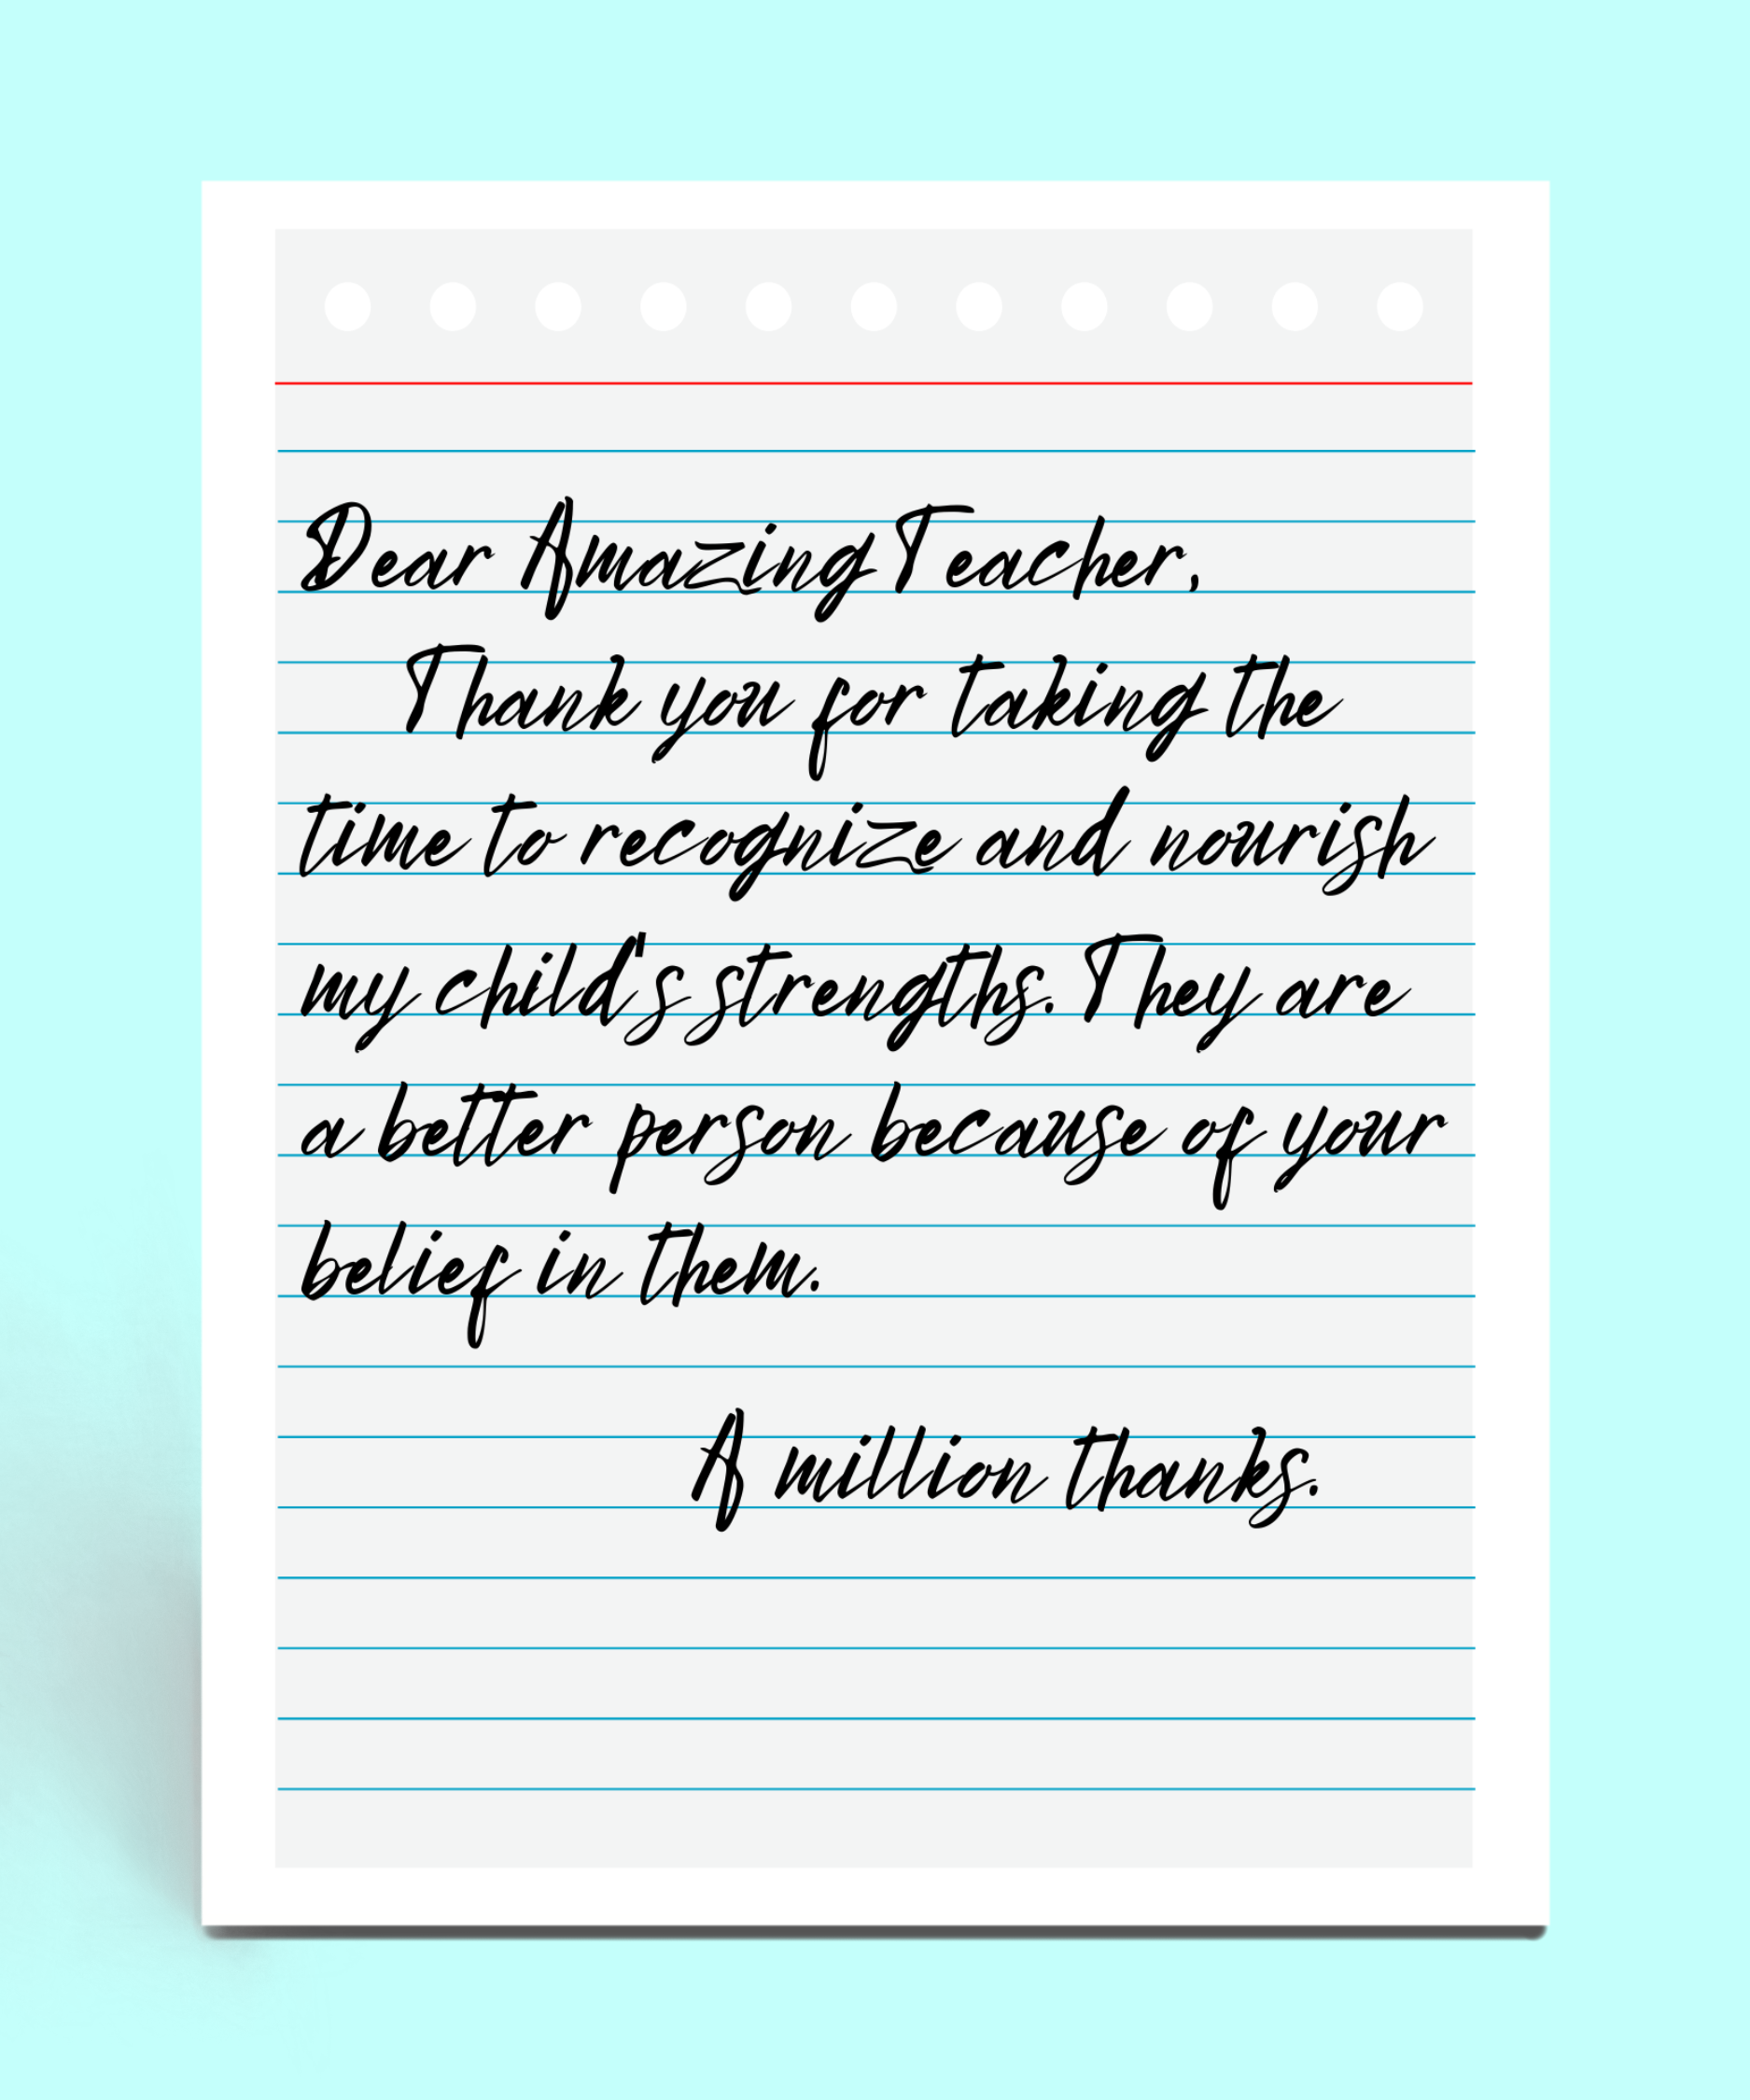 Dear Amazing Teacher,
Thank you for taking the
time to recognize and nourish
my child's strengths. They are
a better person because of your
belief in them.
A million thanks.